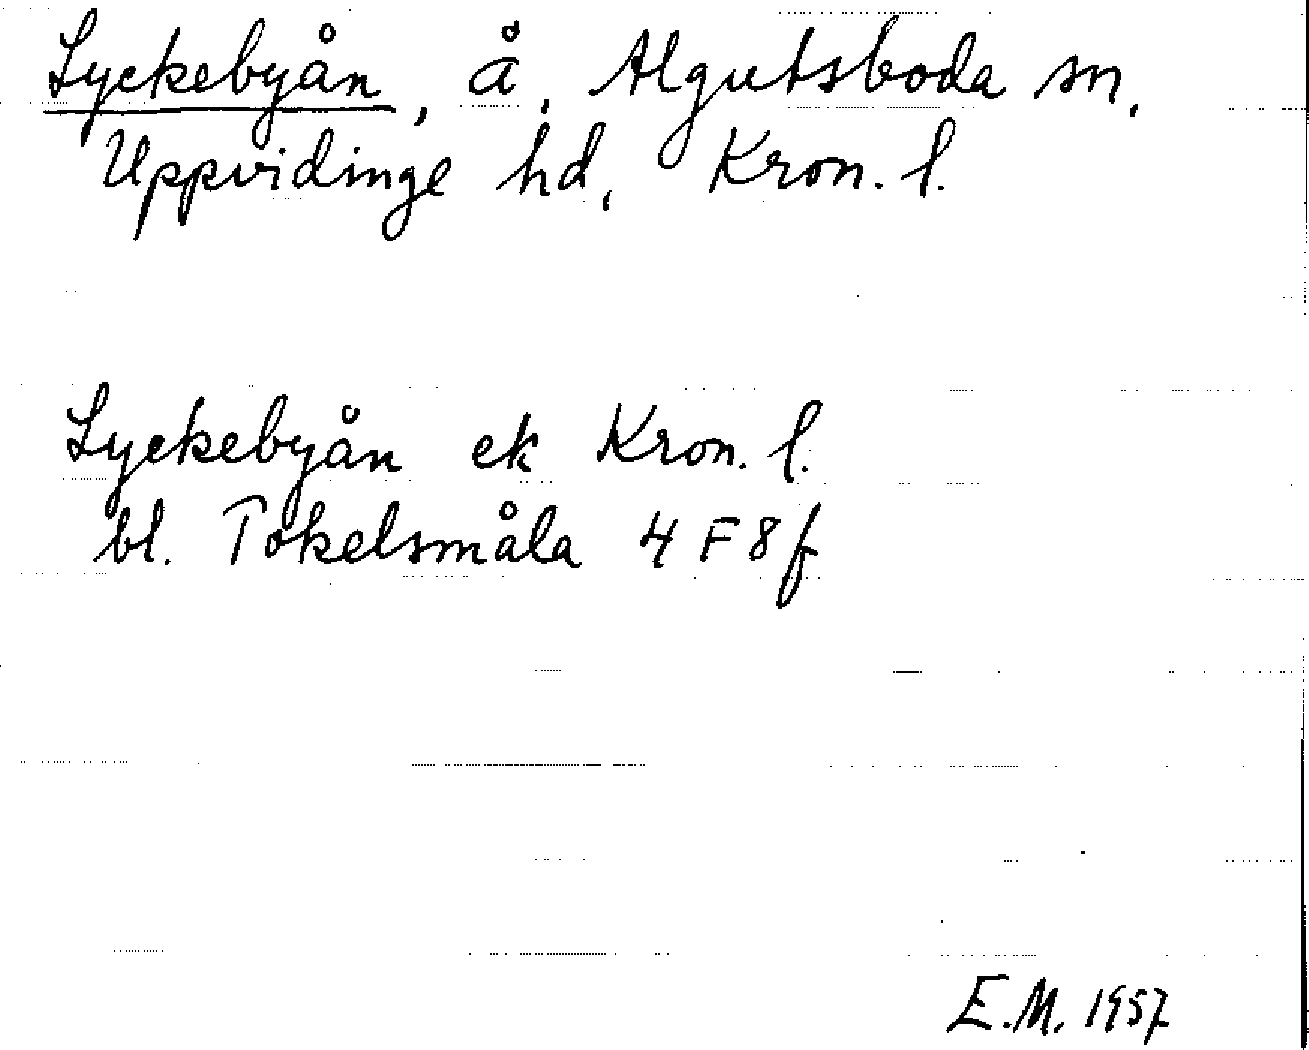 Lyckebyån, å, Algutsboda sn,
Uppvidinge hd, Kron. l.
Lyckebyån ek Kron. l.
bl. Tokelsmåla 4 F 8 f
E.M. 1957